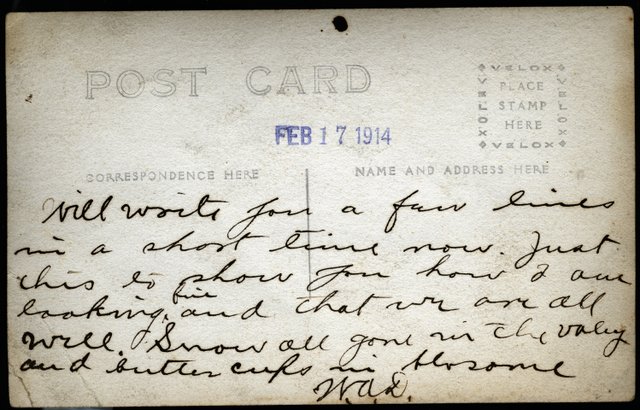 POST CARD
VELOX
PLACE
STAMP
HERE
VELOX
VELOX
VELOX
FEB 17 1914
CORRESPONDENCE HERE
NAME AND ADDRESS HERE
Will write you a few lines
in a short time now. Just
this to show you how I am
looking, fine and that we are all
well. Snow all gone in the valey
and butter cups in blosome
W.A.D.